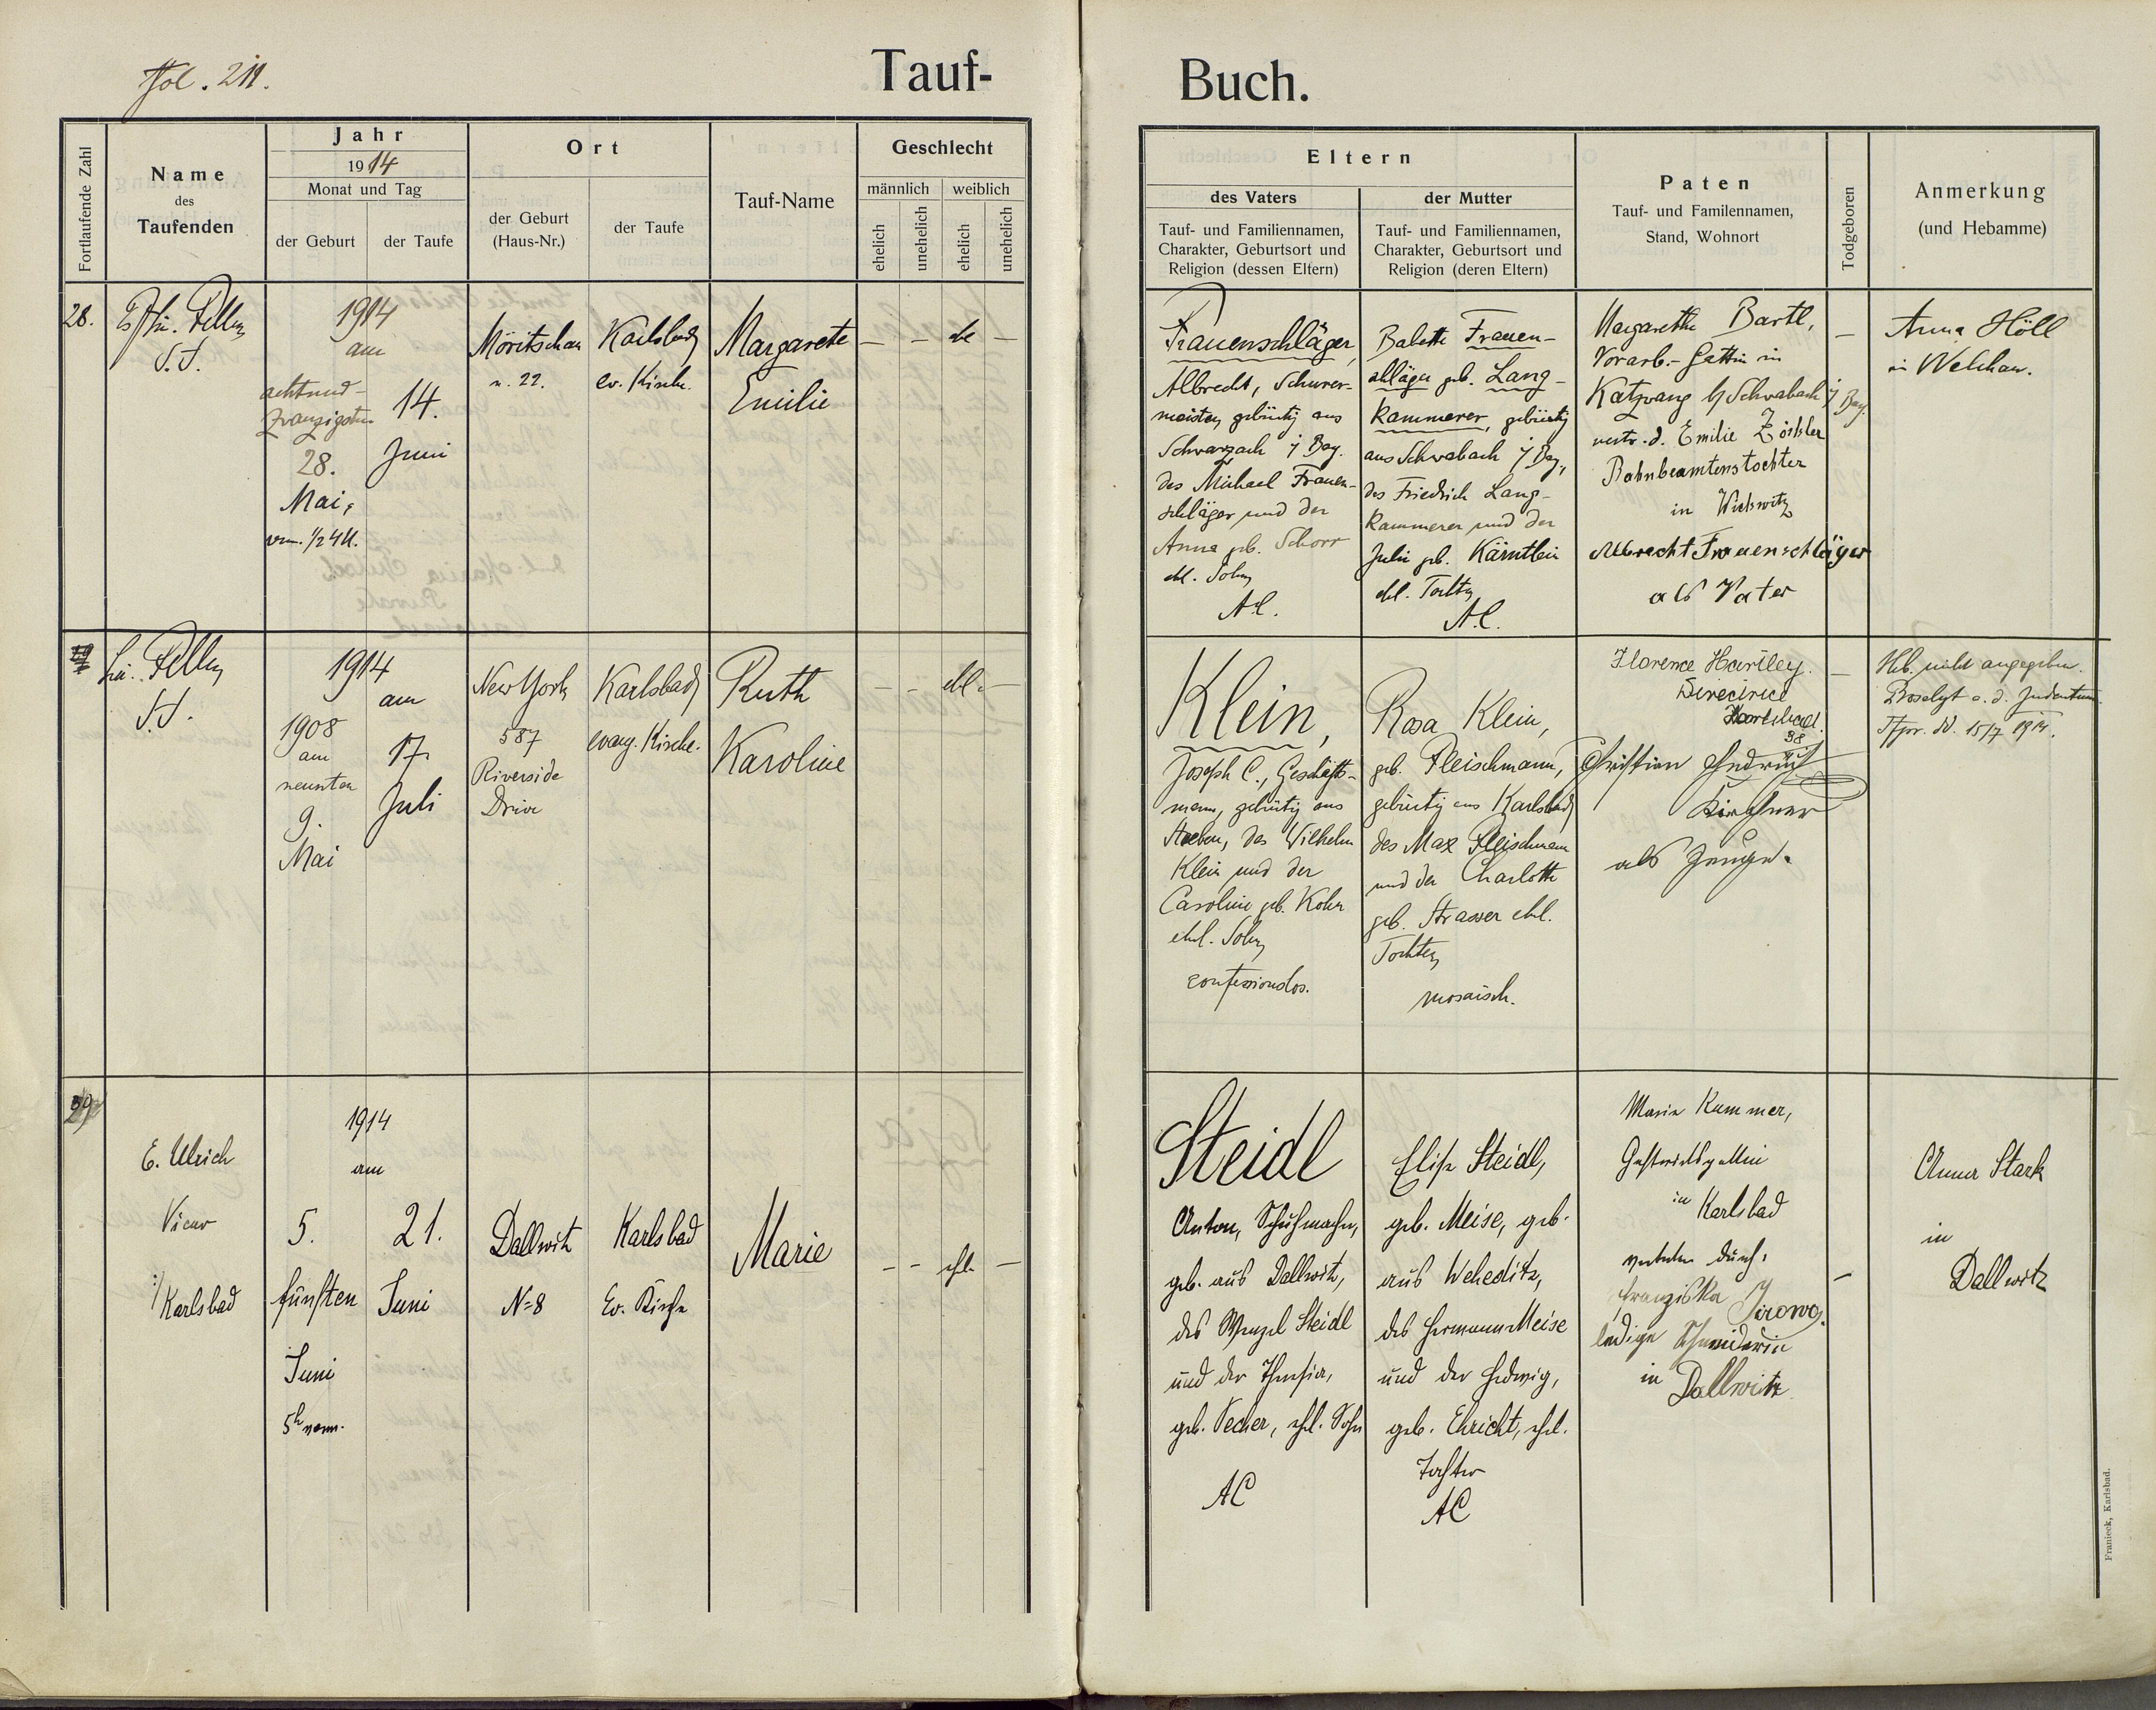 Fol. 211.
Tauf-
Buch.
Fortlaufende Zahl
Name
des
Taufenden
Jahr
1914
Monat und Tag
der Geburt
der Taufe
Ort
der Geburt
(Haus-Nr.)
der Taufe
Tauf-Name
Geschlecht
männlich
weiblich
ehelich
unehelich
ehelich
unehelich
Eltern
des Vaters
Tauf- und Familiennamen,
Charakter, Geburtsort und
Religion (dessen Eltern)
der Mutter
Tauf- und Familiennamen,
Charakter, Geburtsort und
Religion (deren Eltern)
Paten
Tauf- und Familennamen,
Stand, Wohnort
Todgeboren
Anmerkung
(und Hebamme)
28.
1914
am
achtund-
zwanzigsten
28.
Mai,
vorm. 1/2 4 U.
14.
Juni
Möritschau
n. 22.
Karlsbad
ev. Kirche.
Margarete
Emilie
— — — 
Frauenschläger,
Albrecht,
meister, gebürtig aus
Schwarzach i/ Bay.
des Michael Frauen-
schläger und der
Anna geb. Schorr
ehl. Sohn
A.C.
Babette Frauen-
schläger geb. Lang-
kammerer, gebürtig
aus Schwabach i/ Bay,
des Friedrich Lang-
kammerer und der
Julie geb. Kärntlein
ehl. Tochter
A.C.
Margarethe Bartl,
Vorarb.- Gattin in
Katzwang b/ Schwabach i/ Bay.
vertr. d. Emilie
Bahnbeamtenstochter
in Wickwitz
Albrecht Frauenschläger
als Vater
—
Anna Höll
in Welchau.
1914
am
1908
am
neunten
9.
Mai
17.
Juli
New York
587
Riverside
Drive
Karlsbad
evang. Kirche.
Ruth
Karoline
— — ehl. —
Klein,
Joseph C., Geschäfts-
mann, gebürtig aus
des Wilhelm
Klein und der
Caroline geb. Kohn
ehl. Sohn
confessionslos.
Rosa Klein,
geb. Fleischmann,
gebürtig aus Karlsbad
des Max Fleischmann
und der Charlotte
geb. Strasser ehl.
Tochter
mosaisch.
Florence Hartley.
Directrice
Karlsbad.
Christian
Kirchner
als Zeuge.
—
Heb. nicht angegeben.
Proselyt a. d. Judentum.
15/7 1914.
E. Ulrich
Vicar
i/ Karlsbad
1914
am
5.
fünften
Juni
5h vorm.
21.
Juni
Dallwitz
N=8
Karlsbad
Ev. Kirche
Marie
— — ehl. —
Steidl
Anton, Schuhmacher,
geb. aus Dallwitz,
des Wenzel Steidl
und der Theresia,
geb. Pecher, ehl. Sohn
AC
Elise Steidl,
geb. Meise, geb.
aus Weheditz,
des Hermann Meise
und der Hedwig,
geb. Ehricht, ehl.
Tochter
AC
Marie Kummer,
Gastwirtsgattin
in Karlsbad
vertreten durch:
Franziska
ledige Schneiderin
in Dallwitz
—
Anna Stark
in
Dallwitz
Franieck, Karlsbad.